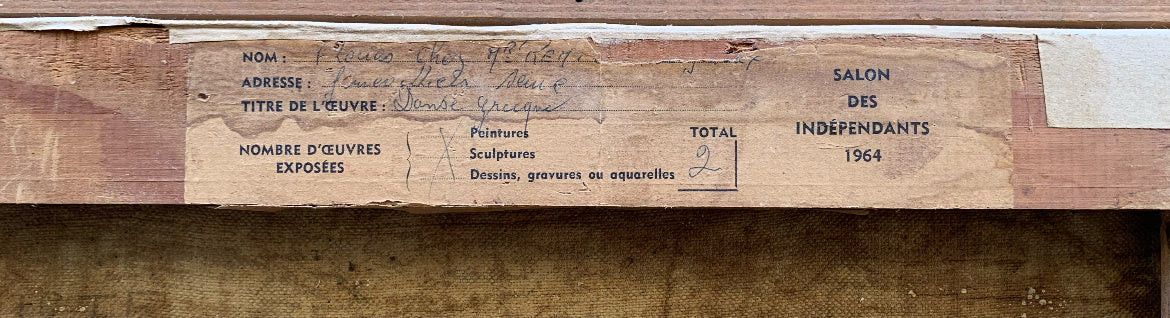 NOM : Chez
ADRESSE : Seine
TITRE DE L'ŒUVRE : Danse Grecque
NOMBRE D'ŒUVRES
EXPOSÉES
Peintures
Sculptures
Dessins, gravures ou aquarelles
TOTAL
2
SALON
DES
INDÉPENDANTS
1964